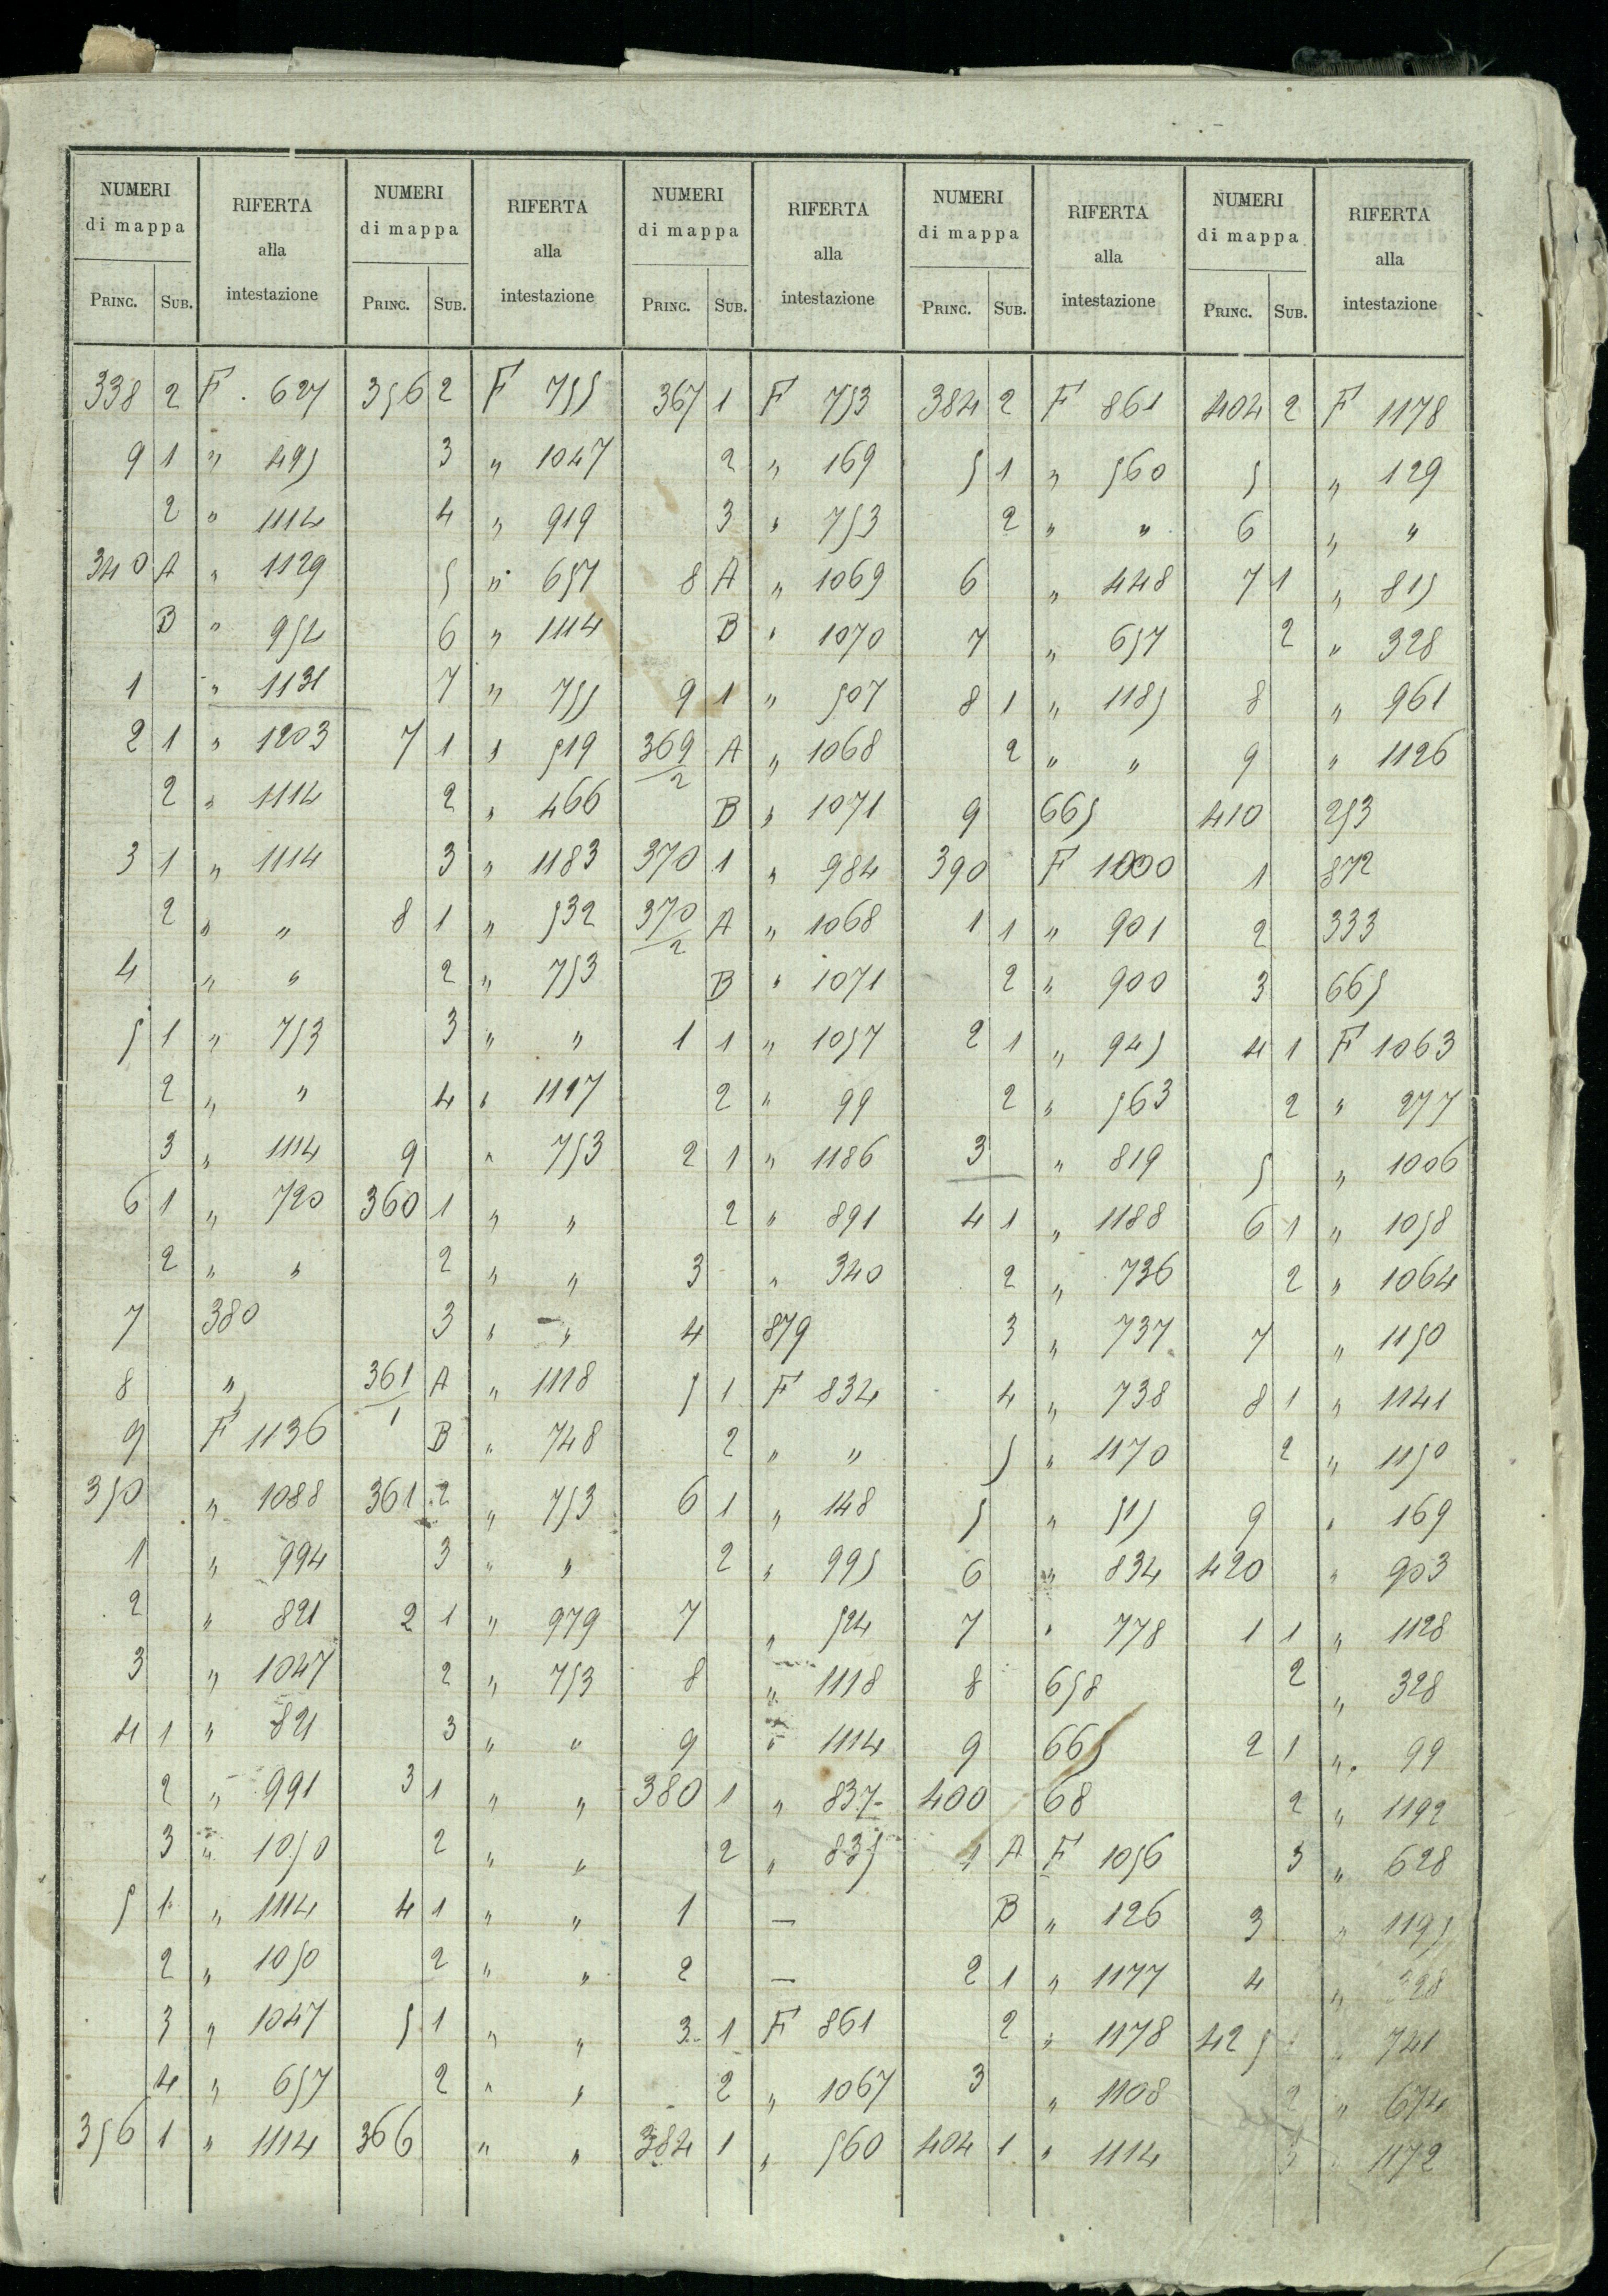 NUMERI di mappa RIFERTA alla intestazione NUMERI di mappa RIFERTA alla intestazione NUMERI di mappa RIFERTA alla intestazione NUMERI di mappa RIFERTA alla intestazione NUMERI di mappa RIFERTA alla intestazione
PRINC. SUB. PRINC. SUB. PRINC. SUB. PRINC. SUB. PRINC. SUB.
338 2 F. 627 356 2 F 755 367 1 F 753 384 2 F 861 404 2 F 1178
9 1 " 495 3 " 1047 2 " 169 5 1 " 560 5 " 129
2 " 1114 4 " 919 3 " 753 2 " " 6 " "
340 A " 1129 5 " 657 8 A " 1069 6 " 448 7 1 " 815
B " 952 6 " 1114 B " 1070 7 " 657 2 " 328
1 " 1131 7 " 755 9 1 " 507 8 1 " 1185 8 " 961
2 1 " 1203 7 1 " 519 369/2 A " 1068 2 " " 9 " 1126
2 " 1114 2 " 466 B " 1071 9 665 410 253
3 1 " 1114 3 " 1183 370 1 " 984 390 F 1000 1 872
2 " " 8 1 " 532 370/2 A " 1068 1 1 " 901 2 333
4 " " 2 " 753 B " 1071 2 " 900 3 665
5 1 " 753 3 " " 1 1 " 1057 2 1 " 945 4 1 F 1063
2 " " 4 " 1197 2 " 99 2 " 563 2 " 277
3 " 1114 9 " 753 2 1 " 1186 3 " 819 5 " 1006
6 1 " 720 360 1 " " 2 " 891 4 1 " 1188 6 1 " 1058
2 " " 2 " " 3 " 340 2 " 736 2 " 1064
7 380 3 " " 4 879 3 " 737 7 " 1150
8 " 361/1 A " 1118 5 1 F 834 4 " 738 8 1 " 1141
9 F 1136 B " 748 2 " " 5 " 1170 2 " 1150
350 " 1088 361 2 " 753 6 1 " 148 5 " 515 9 " 169
1 " 994 3 " " 2 " 995 6 " 834 420 " 903
2 " 821 2 1 " 979 7 " 524 7 " 778 1 1 " 1128
3 " 1047 2 " 753 8 " 1118 8 658 2 " 328
4 1 " 821 3 " " 9 " 1114 9 665 2 1 " 99
2 " 991 3 1 " " 380 1 " 837 400 68 2 " 1192
3 " 1050 2 " " 2 " 835 1 A F 1056 3 " 628
5 1 " 1114 4 1 " " 1 — B " 126 3 " 1195
2 " 1050 2 " " 2 — 2 1 " 1177 4 " 328
3 " 1047 5 1 " " 3 1 F 861 2 " 1178 425 " 741
4 " 657 2 " " 2 " 1067 3 " 1108 2 " 674
356 1 " 1114 366 " " 384 1 " 560 404 1 " 1114 3 " 1172